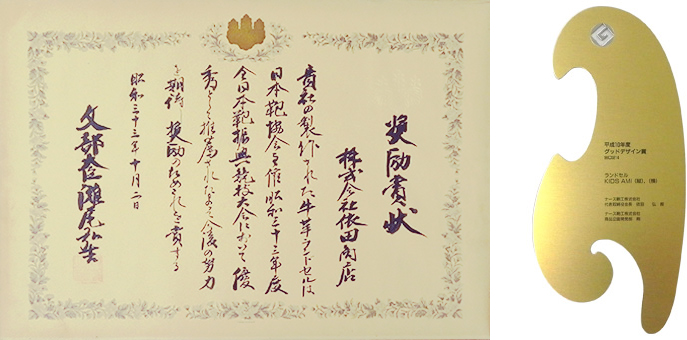 奨励賞状
株式会社依田商店
貴社の製作された牛革ランドセルは
日本鞄協会主催昭和三十三年度
全日本鞄振興競技大会において優
秀と推薦されたので今後の努力
を期待し奨励のためこれを賞する
昭和三十三年十月二日
文部大臣灘尾弘吉
平成10年度
グッドデザイン賞
ランドセル
KIDS AMI (結)、(橋)
ナース鞄工株式会社
ナース鞄工株式会社